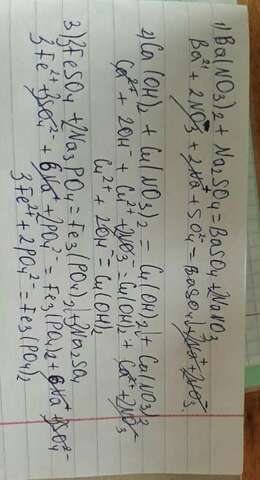 1) Ba(NO3)2 + Na2SO4 = BaSO4 + 2NaNO3
Ba2+ + 2NO3- + 2Na+ + SO42- = BaSO4 + 2Na+ + 2NO3-.
2) Ca(OH)2 + Cu(NO3)2 = Cu(OH)2 + Ca(NO3)2
Ca2+ + 2OH- + Cu2+ + 2NO3- = Cu(OH)2 + Ca2+ + 2NO3-
Cu2+ + 2OH- = Cu(OH)2
3) 3FeSO4 + 2Na3PO4 = Fe3(PO4)2 + 3Na2SO4
3Fe2+ + 3SO42- + 6Na+ + 2PO42- = Fe3(PO4)2 + 6Na+ + 3SO42-
3Fe2+ + 2PO42- = Fe3(PO4)2